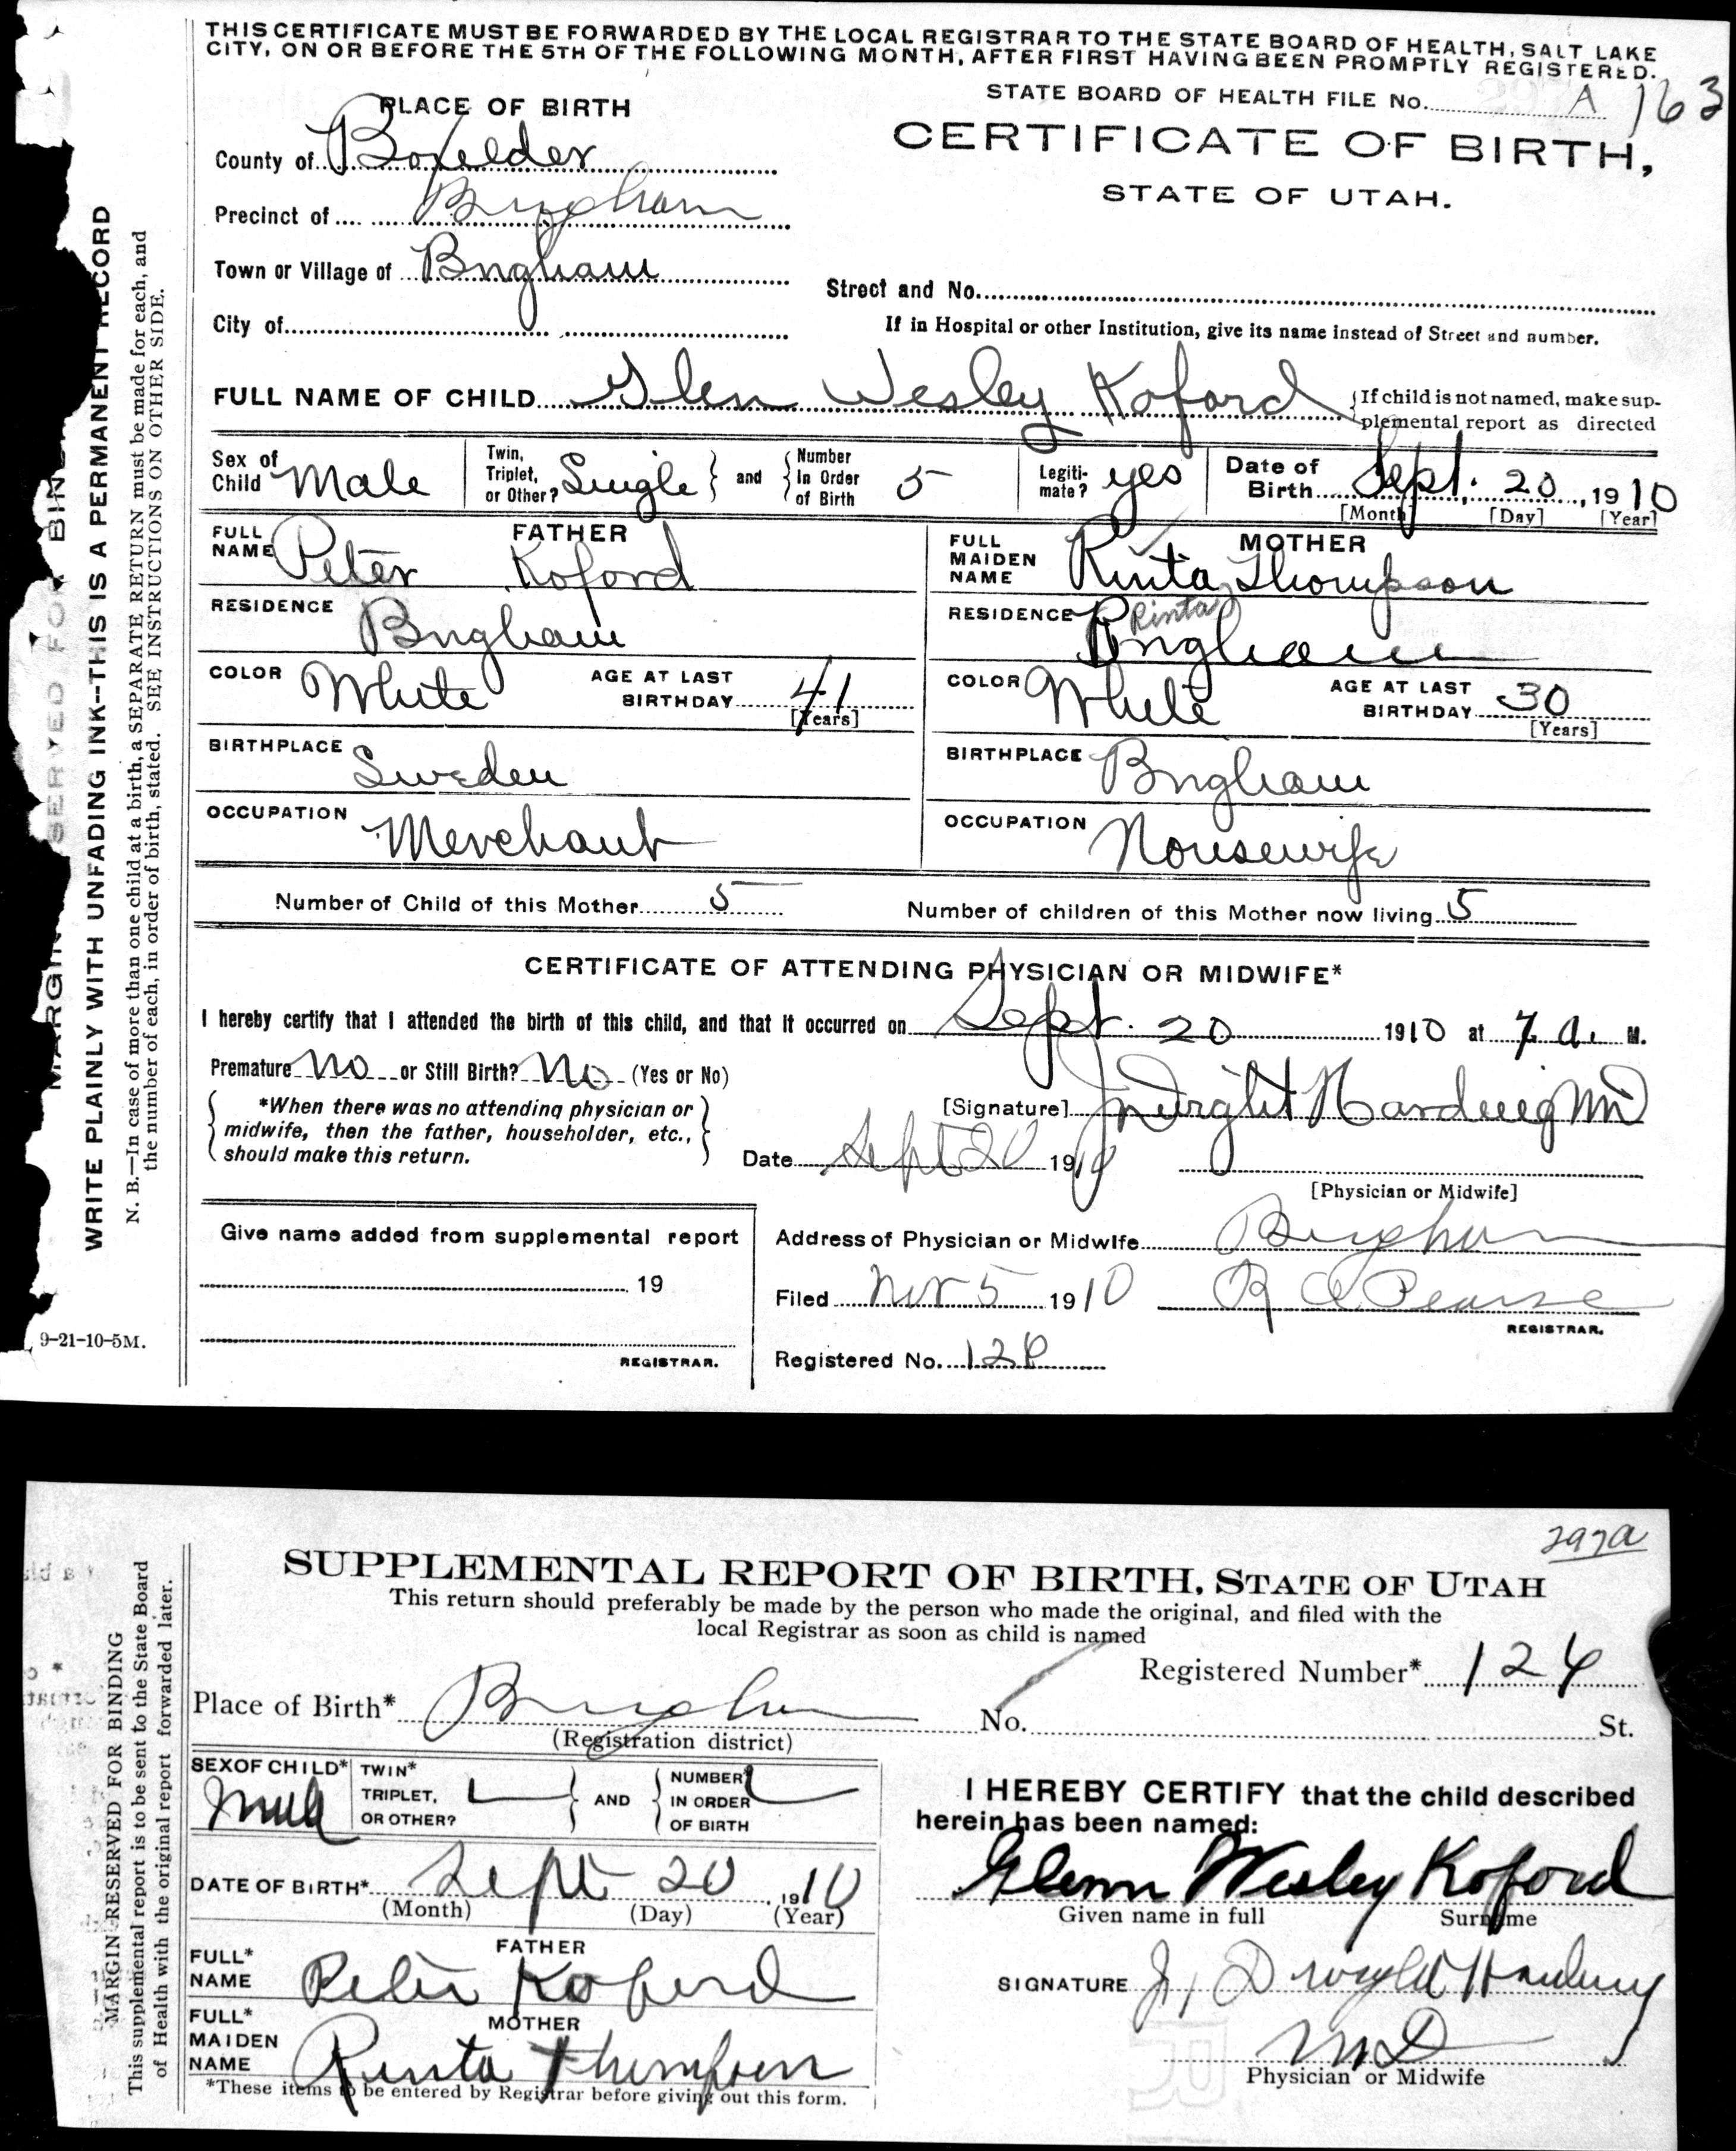 THIS CERTIFICATE MUST BE FORWARDED BY THE LOCAL REGISTRAR TO THE STATE BOARD OF HEALTH, SALT LAKE
CITY, ON OR BEFORE THE 5TH OF THE FOLLOWING MONTH, AFTER FIRST HAVING BEEN PROMPTLY REGISTERED.
STATE BOARD OF HEALTH FILE No. A 163
PLACE OF BIRTH
CERTIFICATE OF BIRTH,
STATE OF UTAH.
County of Boxelder
Precinct of Brigham
Town or Village of Brigham
Street and No.
City of
If in Hospital or other Institution, give its name instead of Street and number.
FULL NAME OF CHILD Glen Wesley Koford {If child is not named, make sup-
plemental report as directed
Sex of Child Male Twin, Triplet, or Other? Single } and { Number In Order of Birth 5 Legiti-mate? yes Date of Birth Sept. 20, 1910
[Month] [Day] [Year]
FATHER
FULL NAME Peter Koford
RESIDENCE Brigham
COLOR White AGE AT LAST BIRTHDAY 41
[Years]
BIRTHPLACE Sweden
OCCUPATION Merchant
MOTHER
FULL MAIDEN NAME Rinta Thompson
Rinta
RESIDENCE Brigham
COLOR White AGE AT LAST BIRTHDAY 30
[Years]
BIRTHPLACE Brigham
OCCUPATION Housewife
Number of Child of this Mother 5 Number of children of this Mother now living 5
CERTIFICATE OF ATTENDING PHYSICIAN OR MIDWIFE*
I hereby certify that I attended the birth of this child, and that it occurred on Sept. 20 1910 at 7 a. M.
Premature No or Still Birth? No (Yes or No)
{ *When there was no attending physician or }
midwife, then the father, householder, etc.,
should make this return.
[Signature] J Dwight Harding MD
Date Sept 20 1910
[Physician or Midwife]
Give name added from supplemental report
19
REGISTRAR.
Address of Physician or Midwife Brigham
Filed Nov 5 1910 R A Pearse
REGISTRAR.
Registered No. 124
MARGIN SERVED FOR BIN
WRITE PLAINLY WITH UNFADING INK--THIS IS A PERMANENT RECORD
N. B.—In case of more than one child at a birth, a SEPARATE RETURN must be made for each, and
the number of each, in order of birth, stated. SEE INSTRUCTIONS ON OTHER SIDE.
9-21-10-5M.
297a
SUPPLEMENTAL REPORT OF BIRTH, STATE OF UTAH
This return should preferably be made by the person who made the original, and filed with the
local Registrar as soon as child is named
Registered Number* 124
Place of Birth* Brigham No. St.
(Registration district)
SEX OF CHILD* Male TWIN* TRIPLET, OR OTHER? } AND { NUMBER IN ORDER OF BIRTH
DATE OF BIRTH* Sept 20, 1910
(Month) (Day) (Year)
FATHER
FULL* NAME Peter Koford
MOTHER
FULL* MAIDEN NAME Rinta Thompson
*These items to be entered by Registrar before giving out this form.
I HEREBY CERTIFY that the child described
herein has been named:
Glenn Wesley Koford
Given name in full Surname
SIGNATURE J. Dwight Harding
MD
Physician or Midwife
MARGIN RESERVED FOR BINDING
This supplemental report is to be sent to the State Board
of Health with the original report forwarded later.